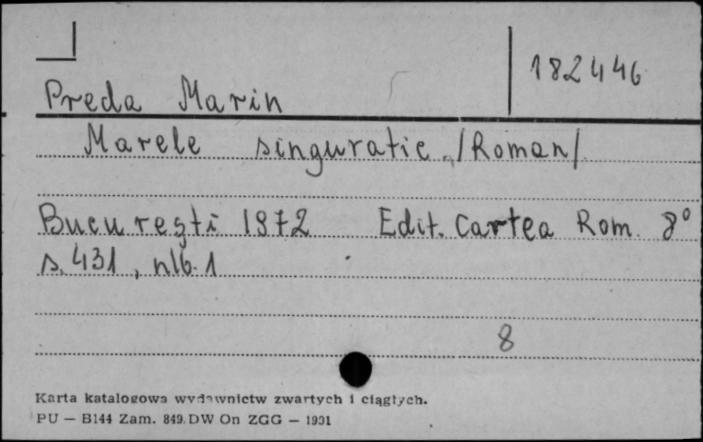 182446
Preda Marin
Marele singuratic /Roman/
Bucureşti 1972 Edit. Cartea Rom. 8°
s. 431, nlb. 1
8
Karta katalogowa wydawnictw zwartych i ciągłych.
PU — B144 Zam. 849. DW On ZGG — 1931